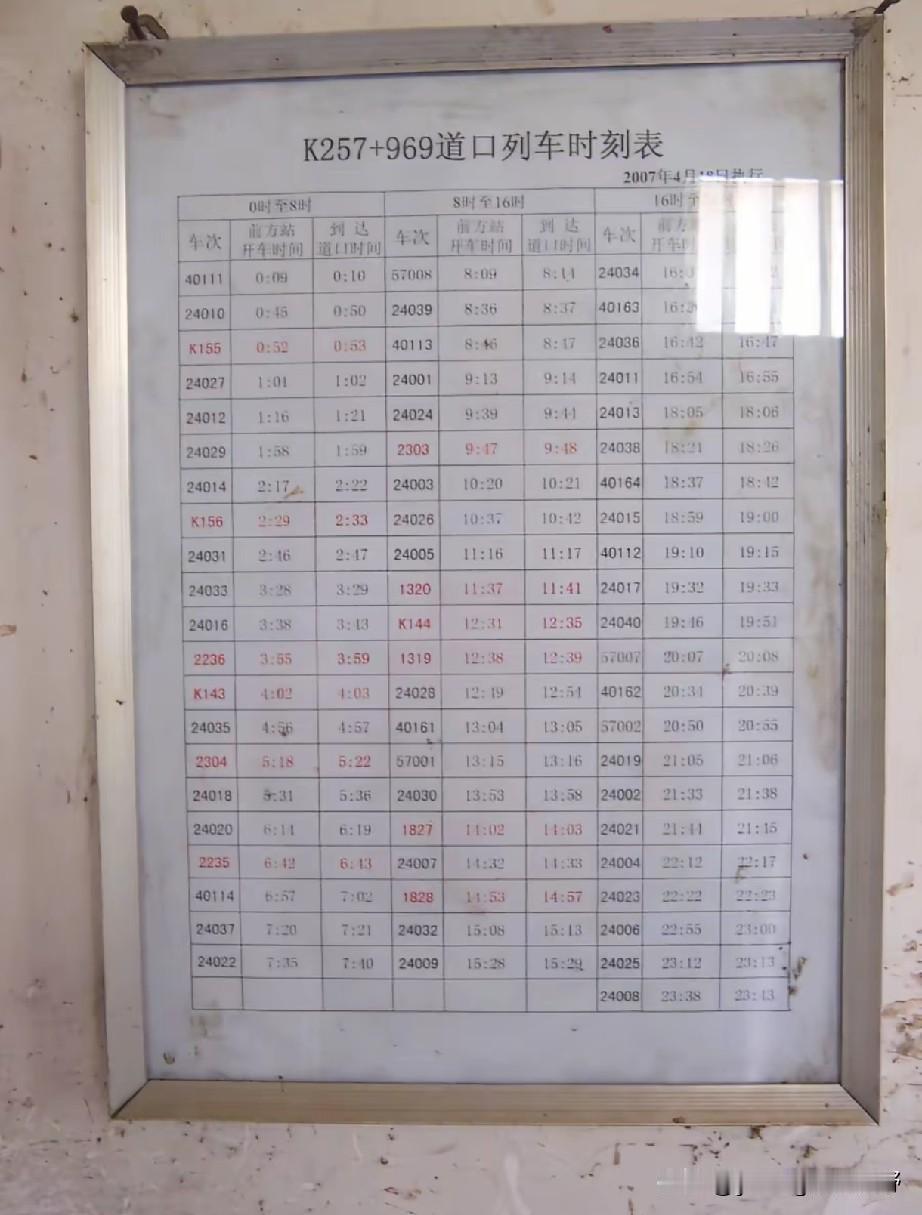 K257+969道口列车时刻表
2007年4月18日执行
0时至8时 8时至16时 16时至
车次 前方站开车时间 到达道口时间 车次 前方站开车时间 到达道口时间 车次 前方 开车时
40111 0:09 0:10 57008 8:09 8:14 24034
24010 0:45 0:50 24039 8:36 8:37 40163
K155 0:52 0:53 40113 8:46 8:47 24036 16:42 16:47
24027 1:01 1:02 24001 9:13 9:14 24011 16:54 16:55
24012 1:16 1:21 24024 9:39 9:44 24013 18:05 18:06
24029 1:58 1:59 2303 9:47 9:48 24038 18:21 18:26
24014 2:17 2:22 24003 10:20 10:21 40164 18:37 18:42
K156 2:29 2:33 24026 10:37 10:42 24015 18:59 19:00
24031 2:46 2:47 24005 11:16 11:17 40112 19:10 19:15
24033 3:28 3:29 1320 11:37 11:41 24017 19:32 19:33
24016 3:38 3:43 K144 12:31 12:35 24040 19:46 19:51
2236 3:55 3:59 1319 12:38 12:39 57007 20:07 20:08
K143 4:02 4:03 24028 12:49 12:54 40162 20:34 20:39
24035 4:56 4:57 40161 13:04 13:05 57002 20:50 20:55
2304 5:18 5:22 57001 13:15 13:16 24019 21:05 21:06
24018 5:31 5:36 24030 13:53 13:58 24002 21:33 21:38
24020 6:14 6:19 1827 14:02 14:03 24021 21:44 21:45
2235 6:42 6:43 24007 14:32 14:33 24004 22:12 22:17
40114 6:57 7:02 1828 14:53 14:57 24023 22:22 22:23
24037 7:20 7:21 24032 15:08 15:13 24006 22:55 23:00
24022 7:35 7:40 24009 15:28 15:29 24025 23:12 23:13
24008 23:38 23:43